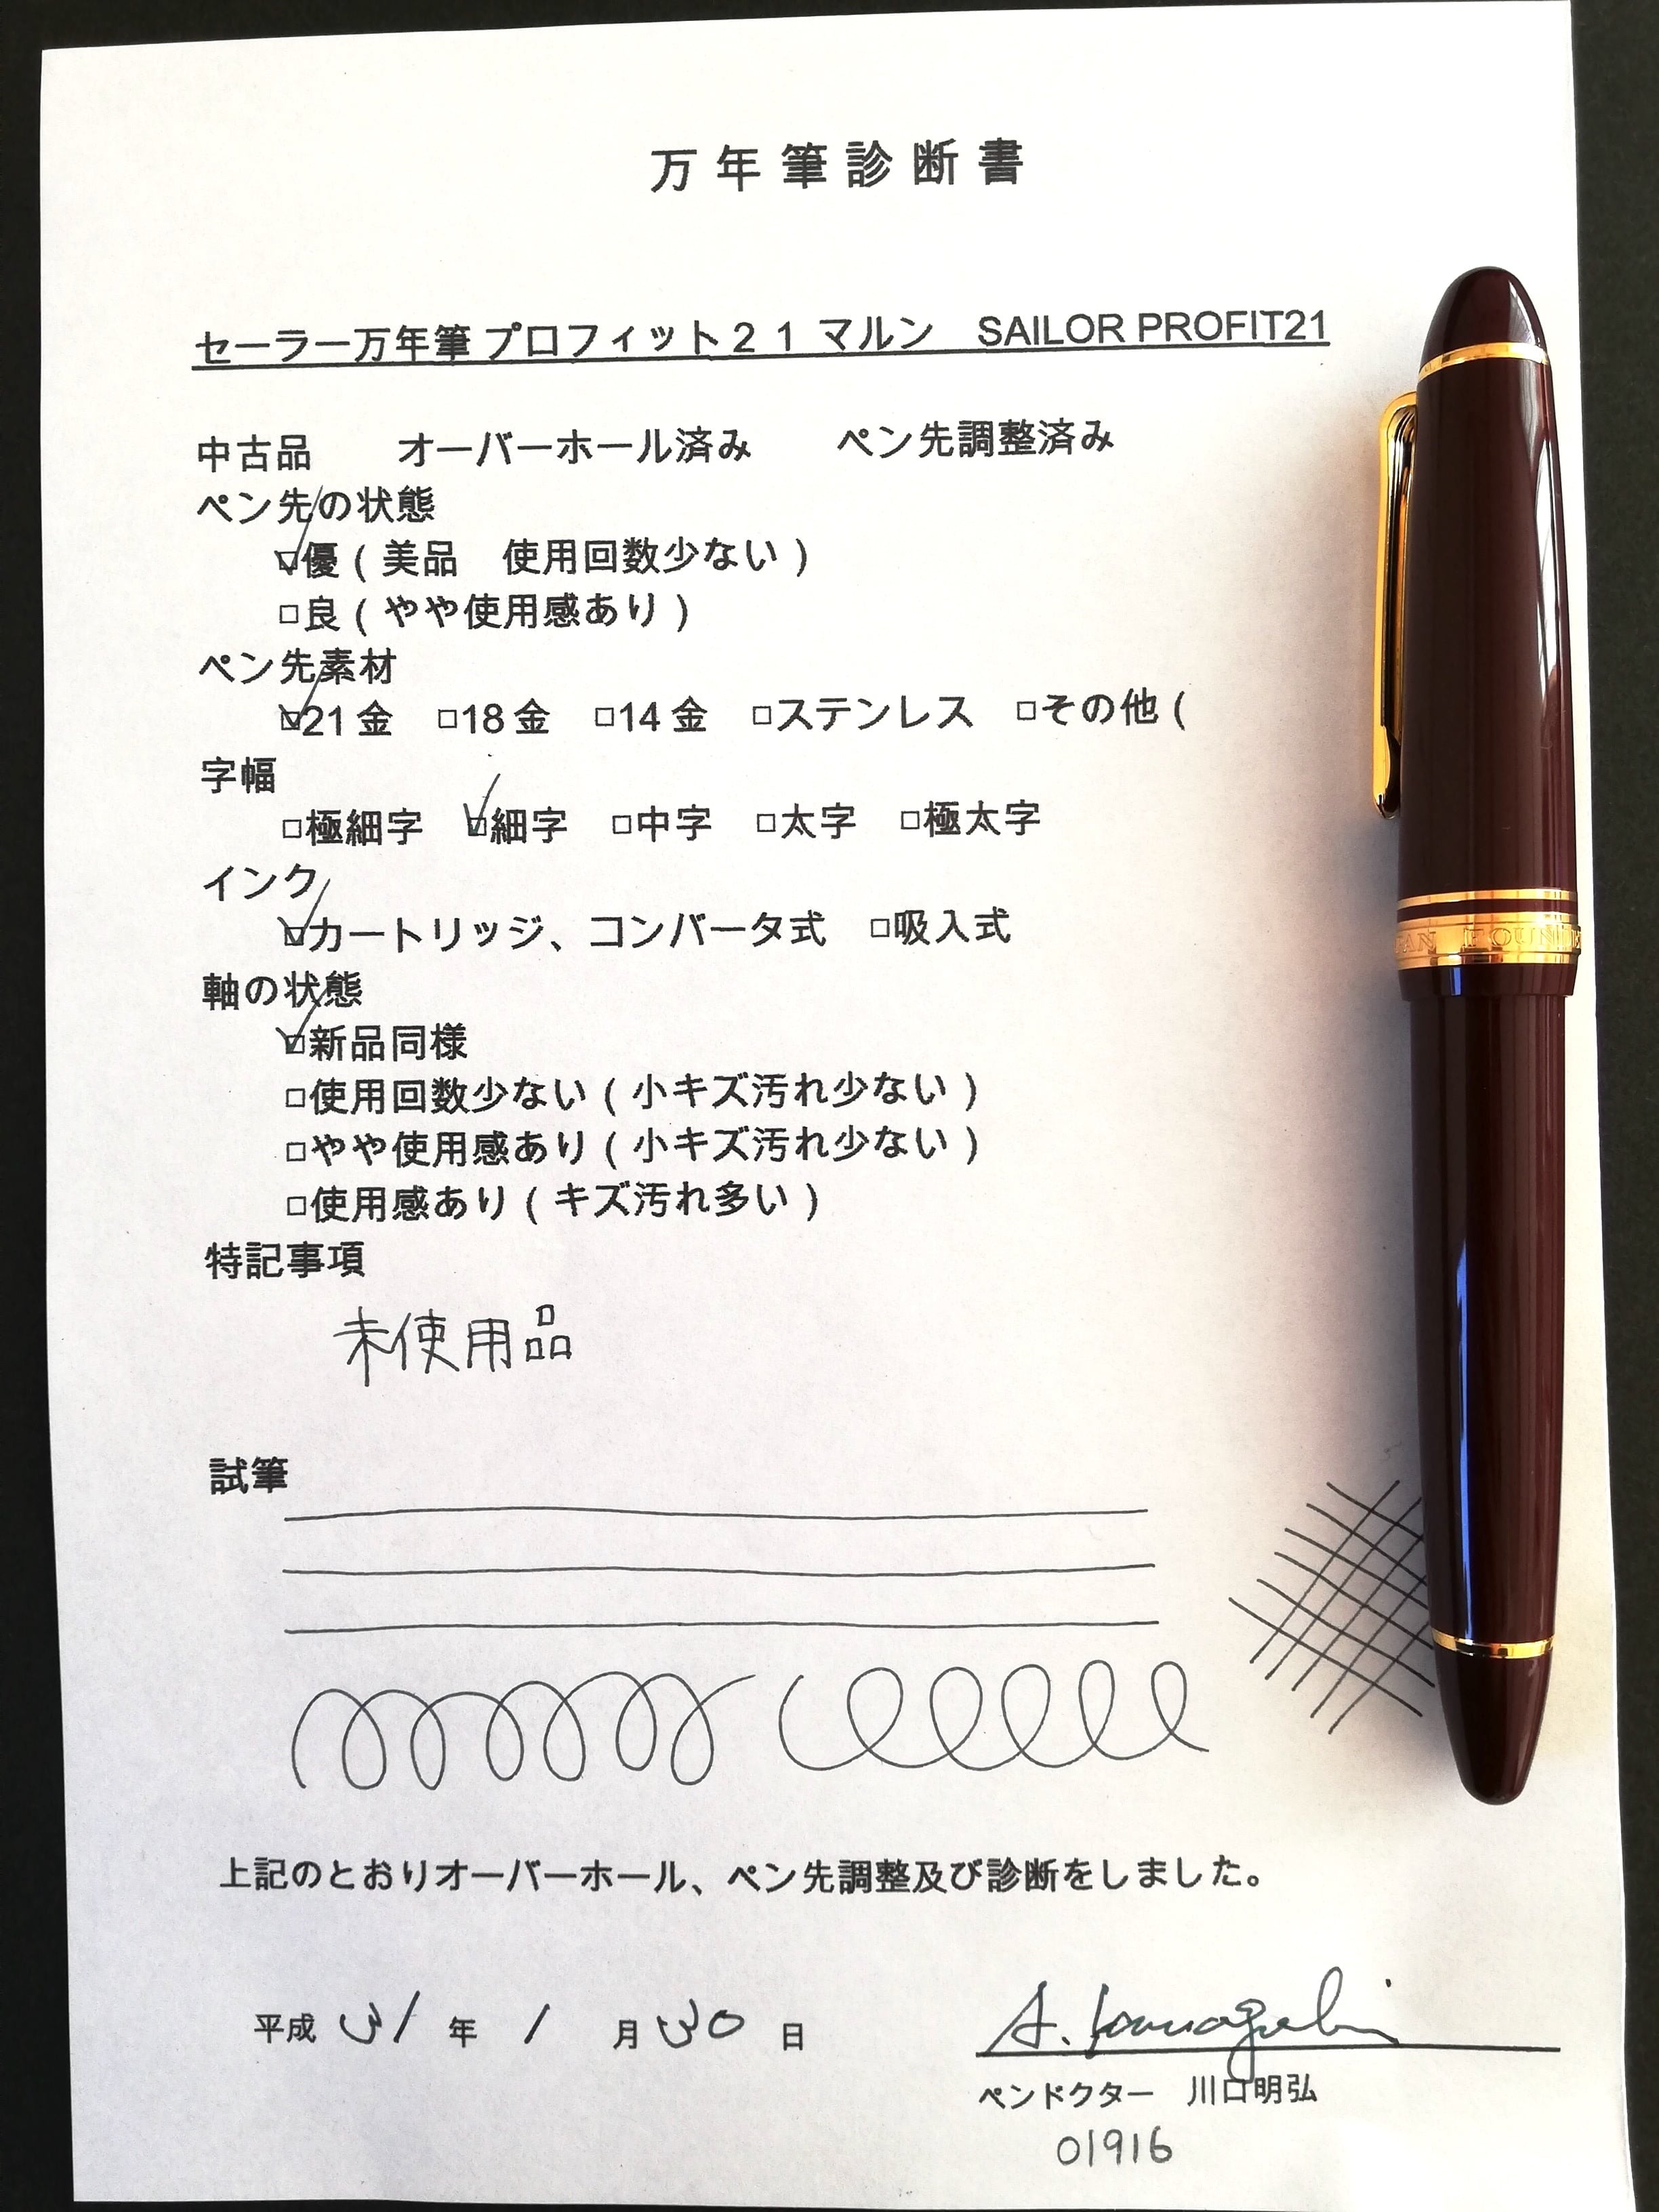 万年筆診断書
セーラー万年筆 プロフィット２１ マルン　SAILOR PROFIT21
中古品　オーバーホール済み　ペン先調整済み
ペン先の状態
☑優（美品　使用回数少ない）
□良（やや使用感あり）
ペン先素材
☑21金　□18金　□14金　□ステンレス　□その他（
字幅
□極細字　☑細字　□中字　□太字　□極太字
インク
☑カートリッジ、コンバータ式　□吸入式
軸の状態
☑新品同様
□使用回数少ない（小キズ汚れ少ない）
□やや使用感あり（小キズ汚れ少ない）
□使用感あり（キズ汚れ多い）
特記事項
未使用品
試筆
上記のとおりオーバーホール、ペン先調整及び診断をしました。
平成 31 年 1 月 30 日
A. Kawaguchi
ペンドクター　川口明弘
01916